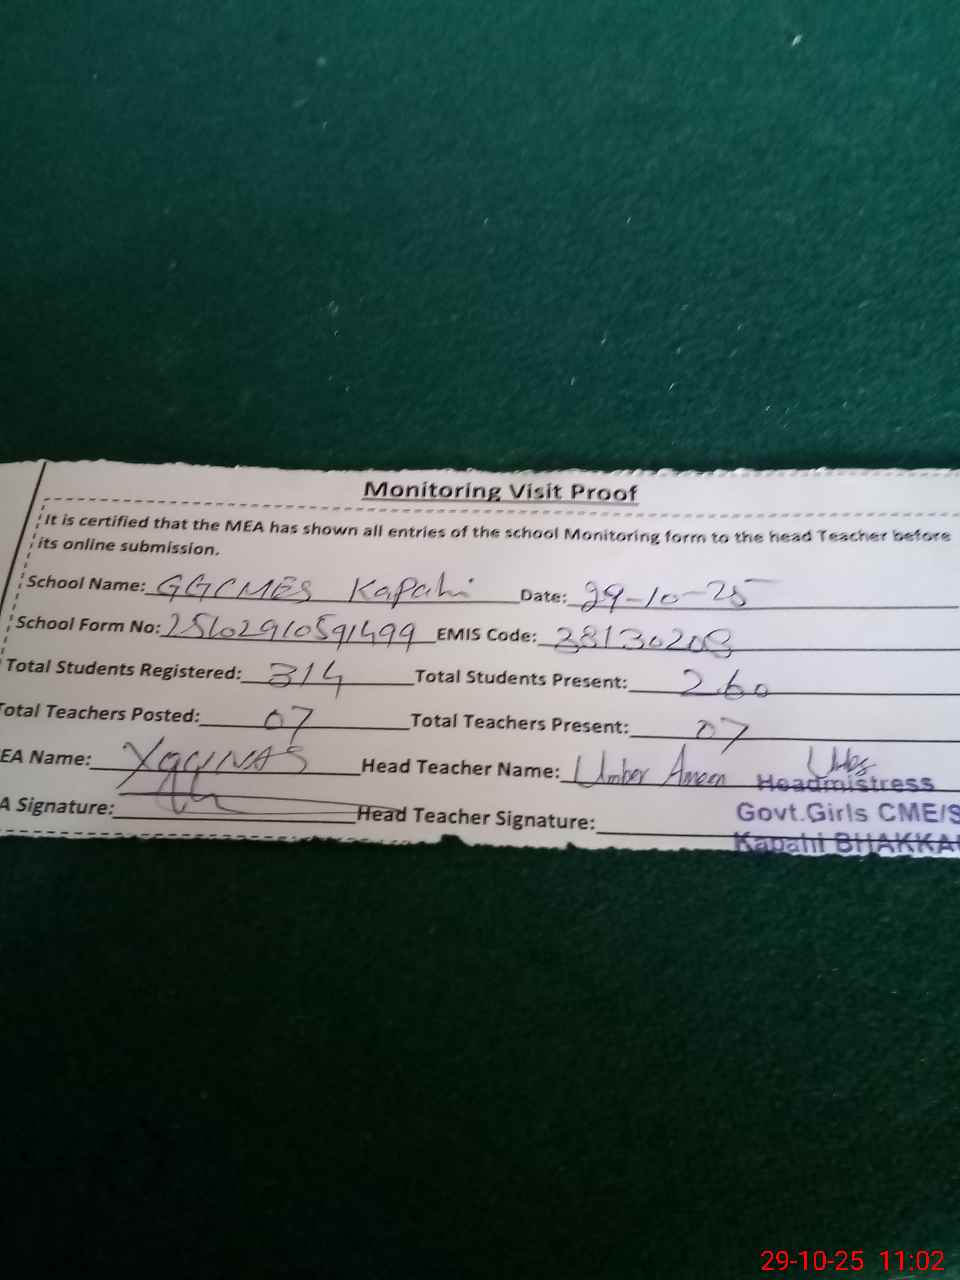 Monitoring Visit Proof
It is certified that the MEA has shown all entries of the school Monitoring form to the head Teacher before
its online submission.
School Name: GGCMES Kapahi Date: 29-10-25
School Form No: 25102910591499 EMIS Code: 38130208
Total Students Registered: 314 Total Students Present: 260
Total Teachers Posted: 07 Total Teachers Present: 07
EA Name: Head Teacher Name: Umber Ameen
Headmistress
A Signature: Head Teacher Signature:
Govt.Girls CME/S
Kapahi BHAKKA
29-10-25 11:02